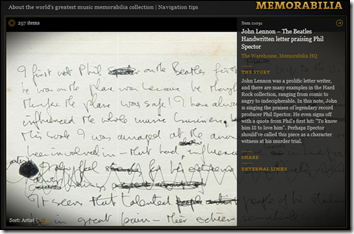 About the world's greatest music memorabilia collection | Navigation tips
MEMORABILIA
257 items
John Lennon – The Beatles
Handwritten letter praising Phil
Spector
The Warehouse, Memorabilia HQ
THE STORY
John Lennon was a prolific letter writer,
and there are many examples in the Hard
Rock collection, ranging from comic to
angry to indecipherable. In this note, John
is singing the praises of legendary record
producer Phil Spector. He even signs off
with a quote from Phil's first hit: "To know
him IS to love him". Perhaps Spector
should've called this piece as a character
witness at his murder trial.
SHARE
EXTERNAL LINKS
I first met Phil on the Beatles first
he was on the plane was because he thought
the plane was safe! I have always
influenced the whole music business
this work I was amazed at the
been involved in – that had influenced
It seems that talented
in great pain – their
Sort: Artist